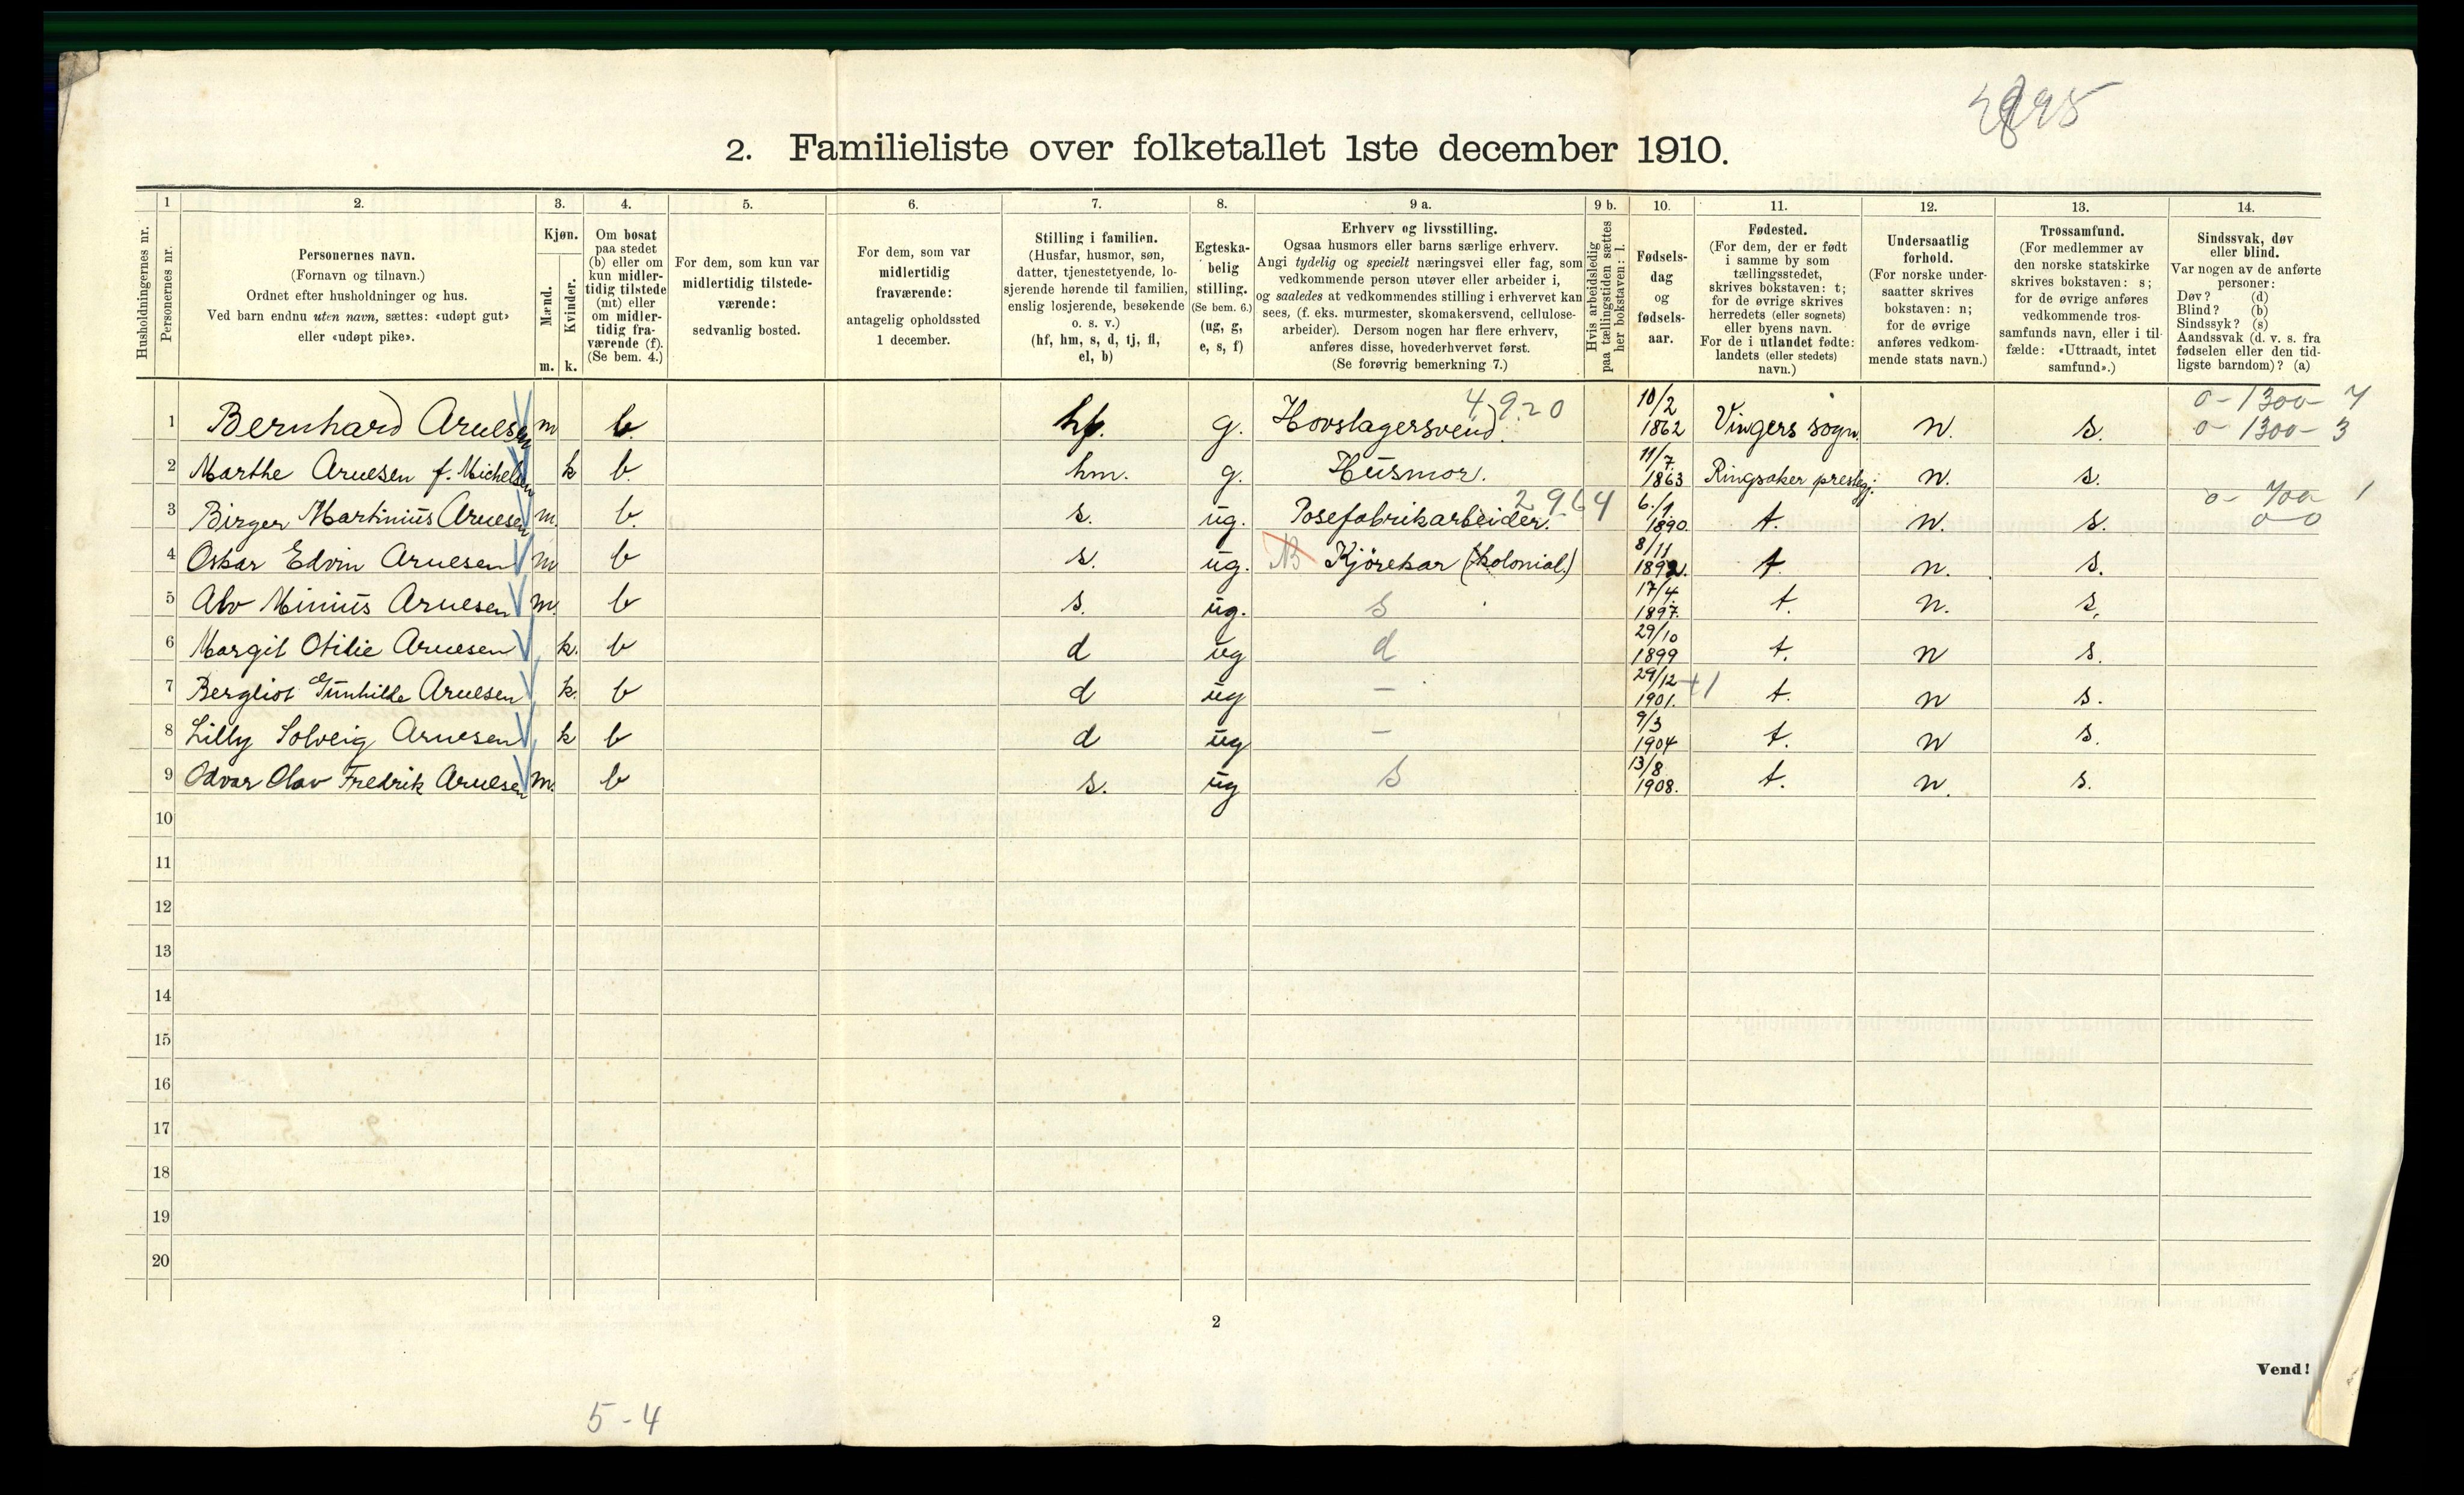 2. Familieliste over folketallet 1ste december 1910.
Husholdningernes nr.
1
Personernes nr.
2.
Personernes navn.
(Fornavn og tilnavn.)
Ordnet efter husholdninger og hus.
Ved barn endnu uten navn, sættes: «udøpt gut»
eller «udøpt pike».
3.
Kjøn.
Mænd.
Kvinder.
m. k.
4.
Om bosat
paa stedet
(b) eller om
kun midler-
tidig tilstede
(mt) eller
om midler-
tidig fra-
værende (f).
(Se bem. 4.)
5.
For dem, som kun var
midlertidig tilstede-
værende:
sedvanlig bosted.
6.
For dem, som var
midlertidig
fraværende:
antagelig opholdssted
1 december.
7.
Stilling i familien.
(Husfar, husmor, søn,
datter, tjenestetyende, lo-
sjerende hørende til familien,
enslig losjerende, besøkende
o. s. v.)
(hf, hm, s, d, tj, fl,
el, b)
8.
Egteska-
belig
stilling.
(Se bem. 6.)
(ug, g,
e, s, f)
9 a.
Erhverv og livsstilling.
Ogsaa husmors eller barns særlige erhverv.
Angi tydelig og specielt næringsvei eller fag, som
vedkommende person utøver eller arbeider i,
og saaledes at vedkommendes stilling i erhvervet kan
sees, (f. eks. murmester, skomakersvend, cellulose-
arbeider). Dersom nogen har flere erhverv,
anføres disse, hovederhvervet først.
(Se forøvrig bemerkning 7.)
9 b.
Hvis arbeidsledig
paa tællingstiden sættes
her bokstaven: l.
10.
Fødsels-
dag
og
fødsels-
aar.
11.
Fødested.
(For dem, der er født
i samme by som
tællingsstedet,
skrives bokstaven: t;
for de øvrige skrives
herredets (eller sognets)
eller byens navn.
For de i utlandet fødte:
landets (eller stedets)
navn.)
12.
Undersaatlig
forhold.
(For norske under-
saatter skrives
bokstaven: n;
for de øvrige
anføres vedkom-
mende stats navn.)
13.
Trossamfund.
(For medlemmer av
den norske statskirke
skrives bokstaven: s;
for de øvrige anføres
vedkommende tros-
samfunds navn, eller i til-
fælde: «Uttraadt, intet
samfund».)
14.
Sindssvak, døv
eller blind.
Var nogen av de anførte
personer:
Døv? (d)
Blind? (b)
Sindssyk? (s)
Aandssvak (d. v. s. fra
fødselen eller den tid-
ligste barndom)? (a)
1 Bernhard Arnesen m b. hf. g. Hovslagersvend. 4920 10/2 1862 Vingers sogn n. s. 0-1300- 4
0- 1300- 3
2 Marthe Arnesen f. Michelsen k b. hm. g. Husmor. 11/7 1863 Ringsaker prestegj. n. s.
3 Birger Martinius Arnesen m. b. s. ug. Posefabrikarbeider. 2964 6/1 1890. t. n. s. 0- 700 1
0-0
4 Oskar Edvin Arnesen m b s. ug. NB Kjørekar (kolonial.) 8/11 1892. t. n. s.
5 Alv Minius Arnesen m. b s. ug. s 17/4 1897. t. n. s.
6 Margit Otilie Arnesen k. b d ug d 29/10 1899 t. n s.
7 Bergliot Gunhilde Arnesen k. b d ug - 29/12 1901. +1 t. n s.
8 Lilly Solveig Arnesen k b d ug - 9/3 1904 t. n s.
9 Odvar Olav Fredrik Arnesen m. b s. ug s 13/8 1908. t. n. s.
10
11
12
13
14
15
16
17
18
19
20
2
Vend!
5-4